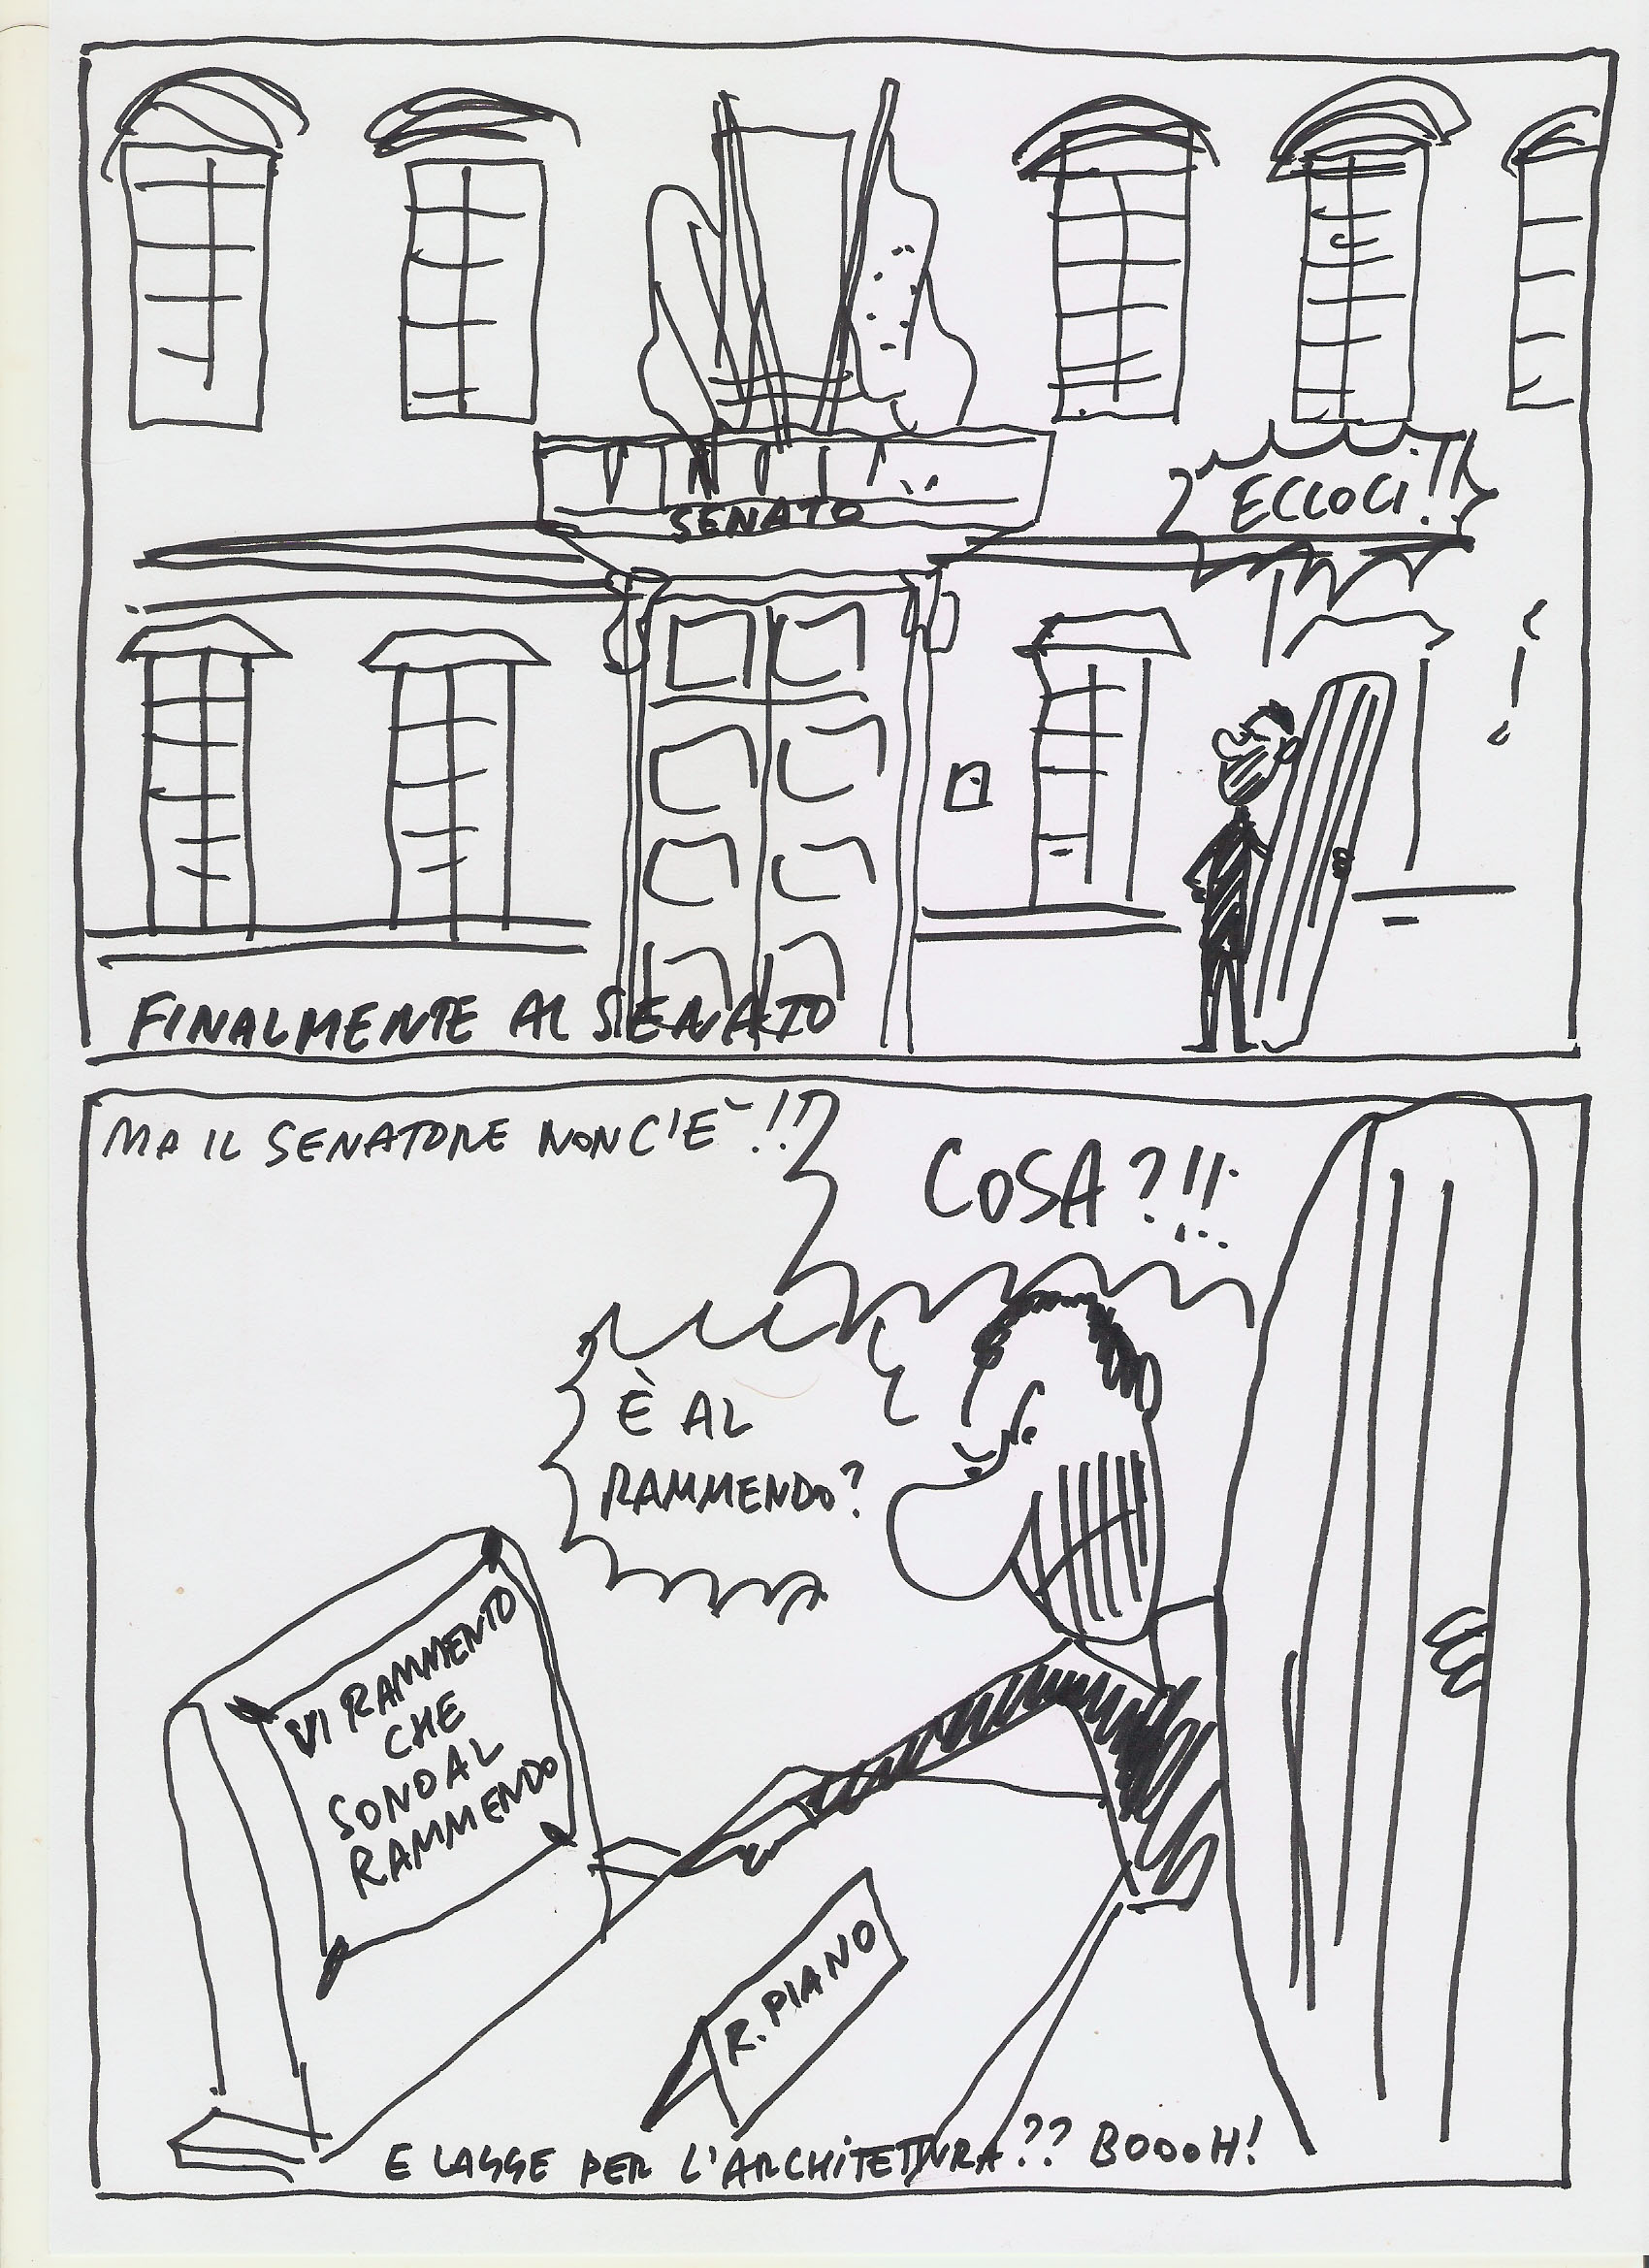 SENATO
ECCOCI!!
FINALMENTE AL SENATO
MA IL SENATORE NON C'È!!
COSA?!!
È AL
RAMMENDO?
VI RAMMENTO
CHE
SONO AL
RAMMENDO
R. PIANO
E LAGGE PER L'ARCHITETTURA?? BOOOH!